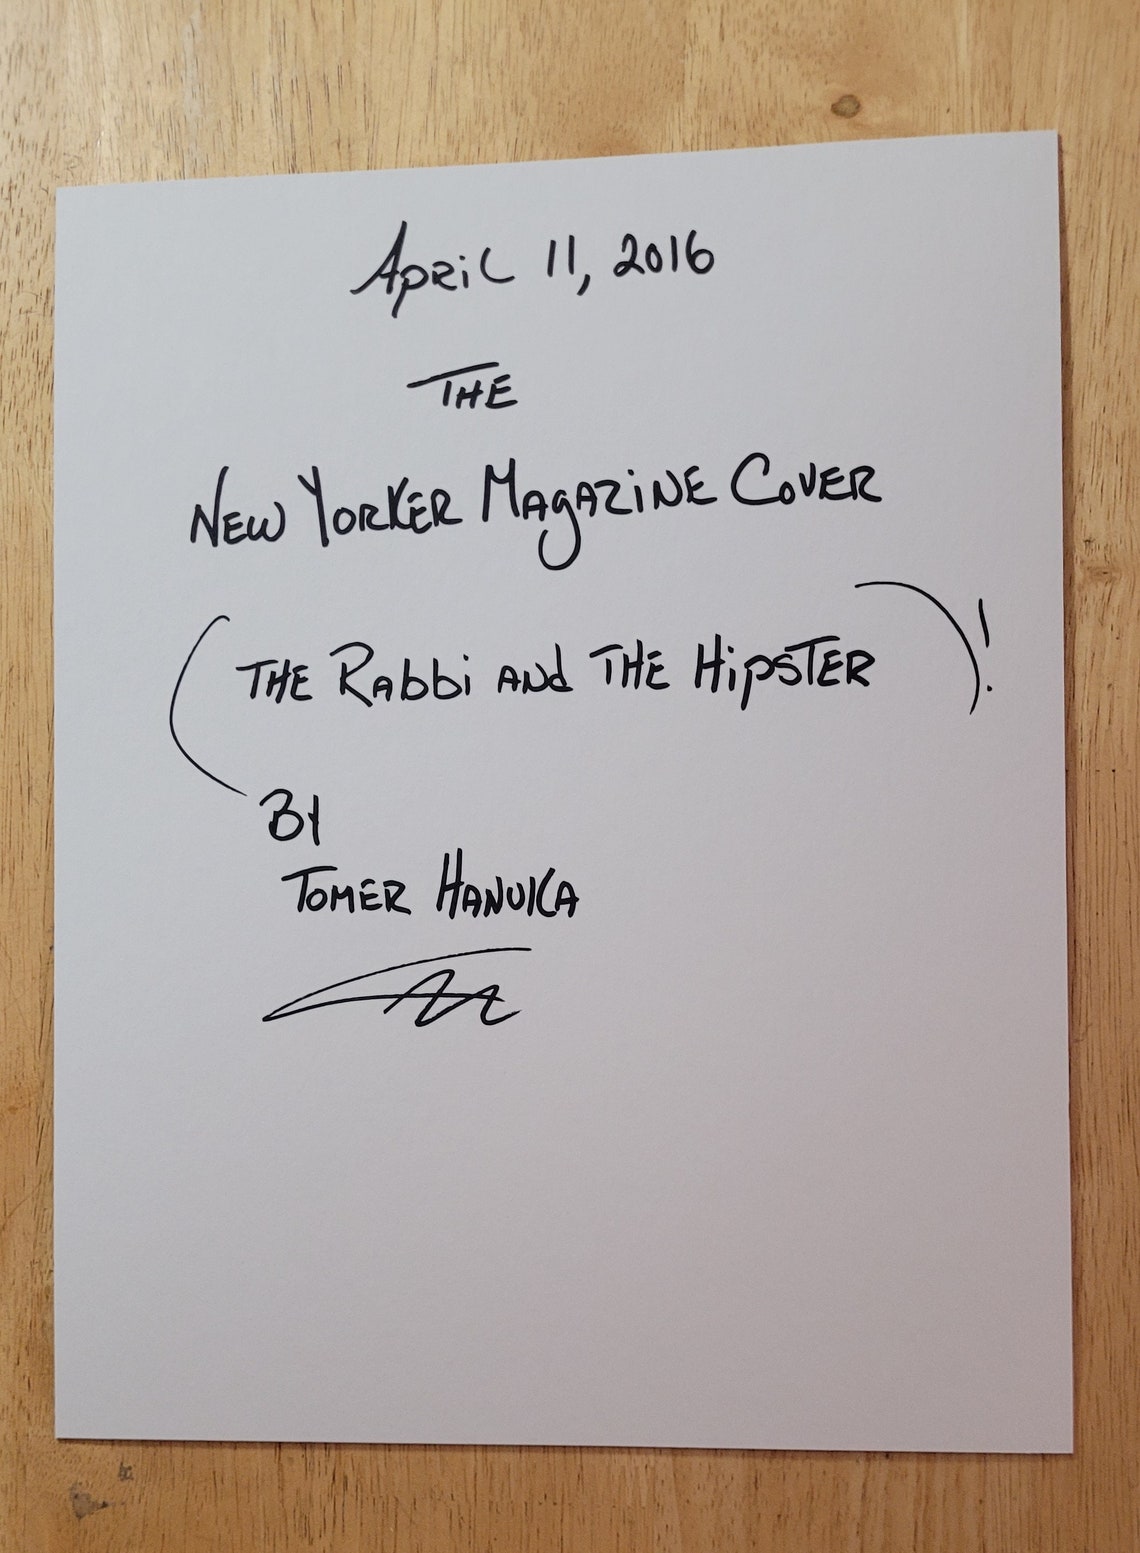 April 11, 2016
THE
New Yorker Magazine Cover
(THE Rabbi and THE Hipster)!
By
Tomer Hanuka